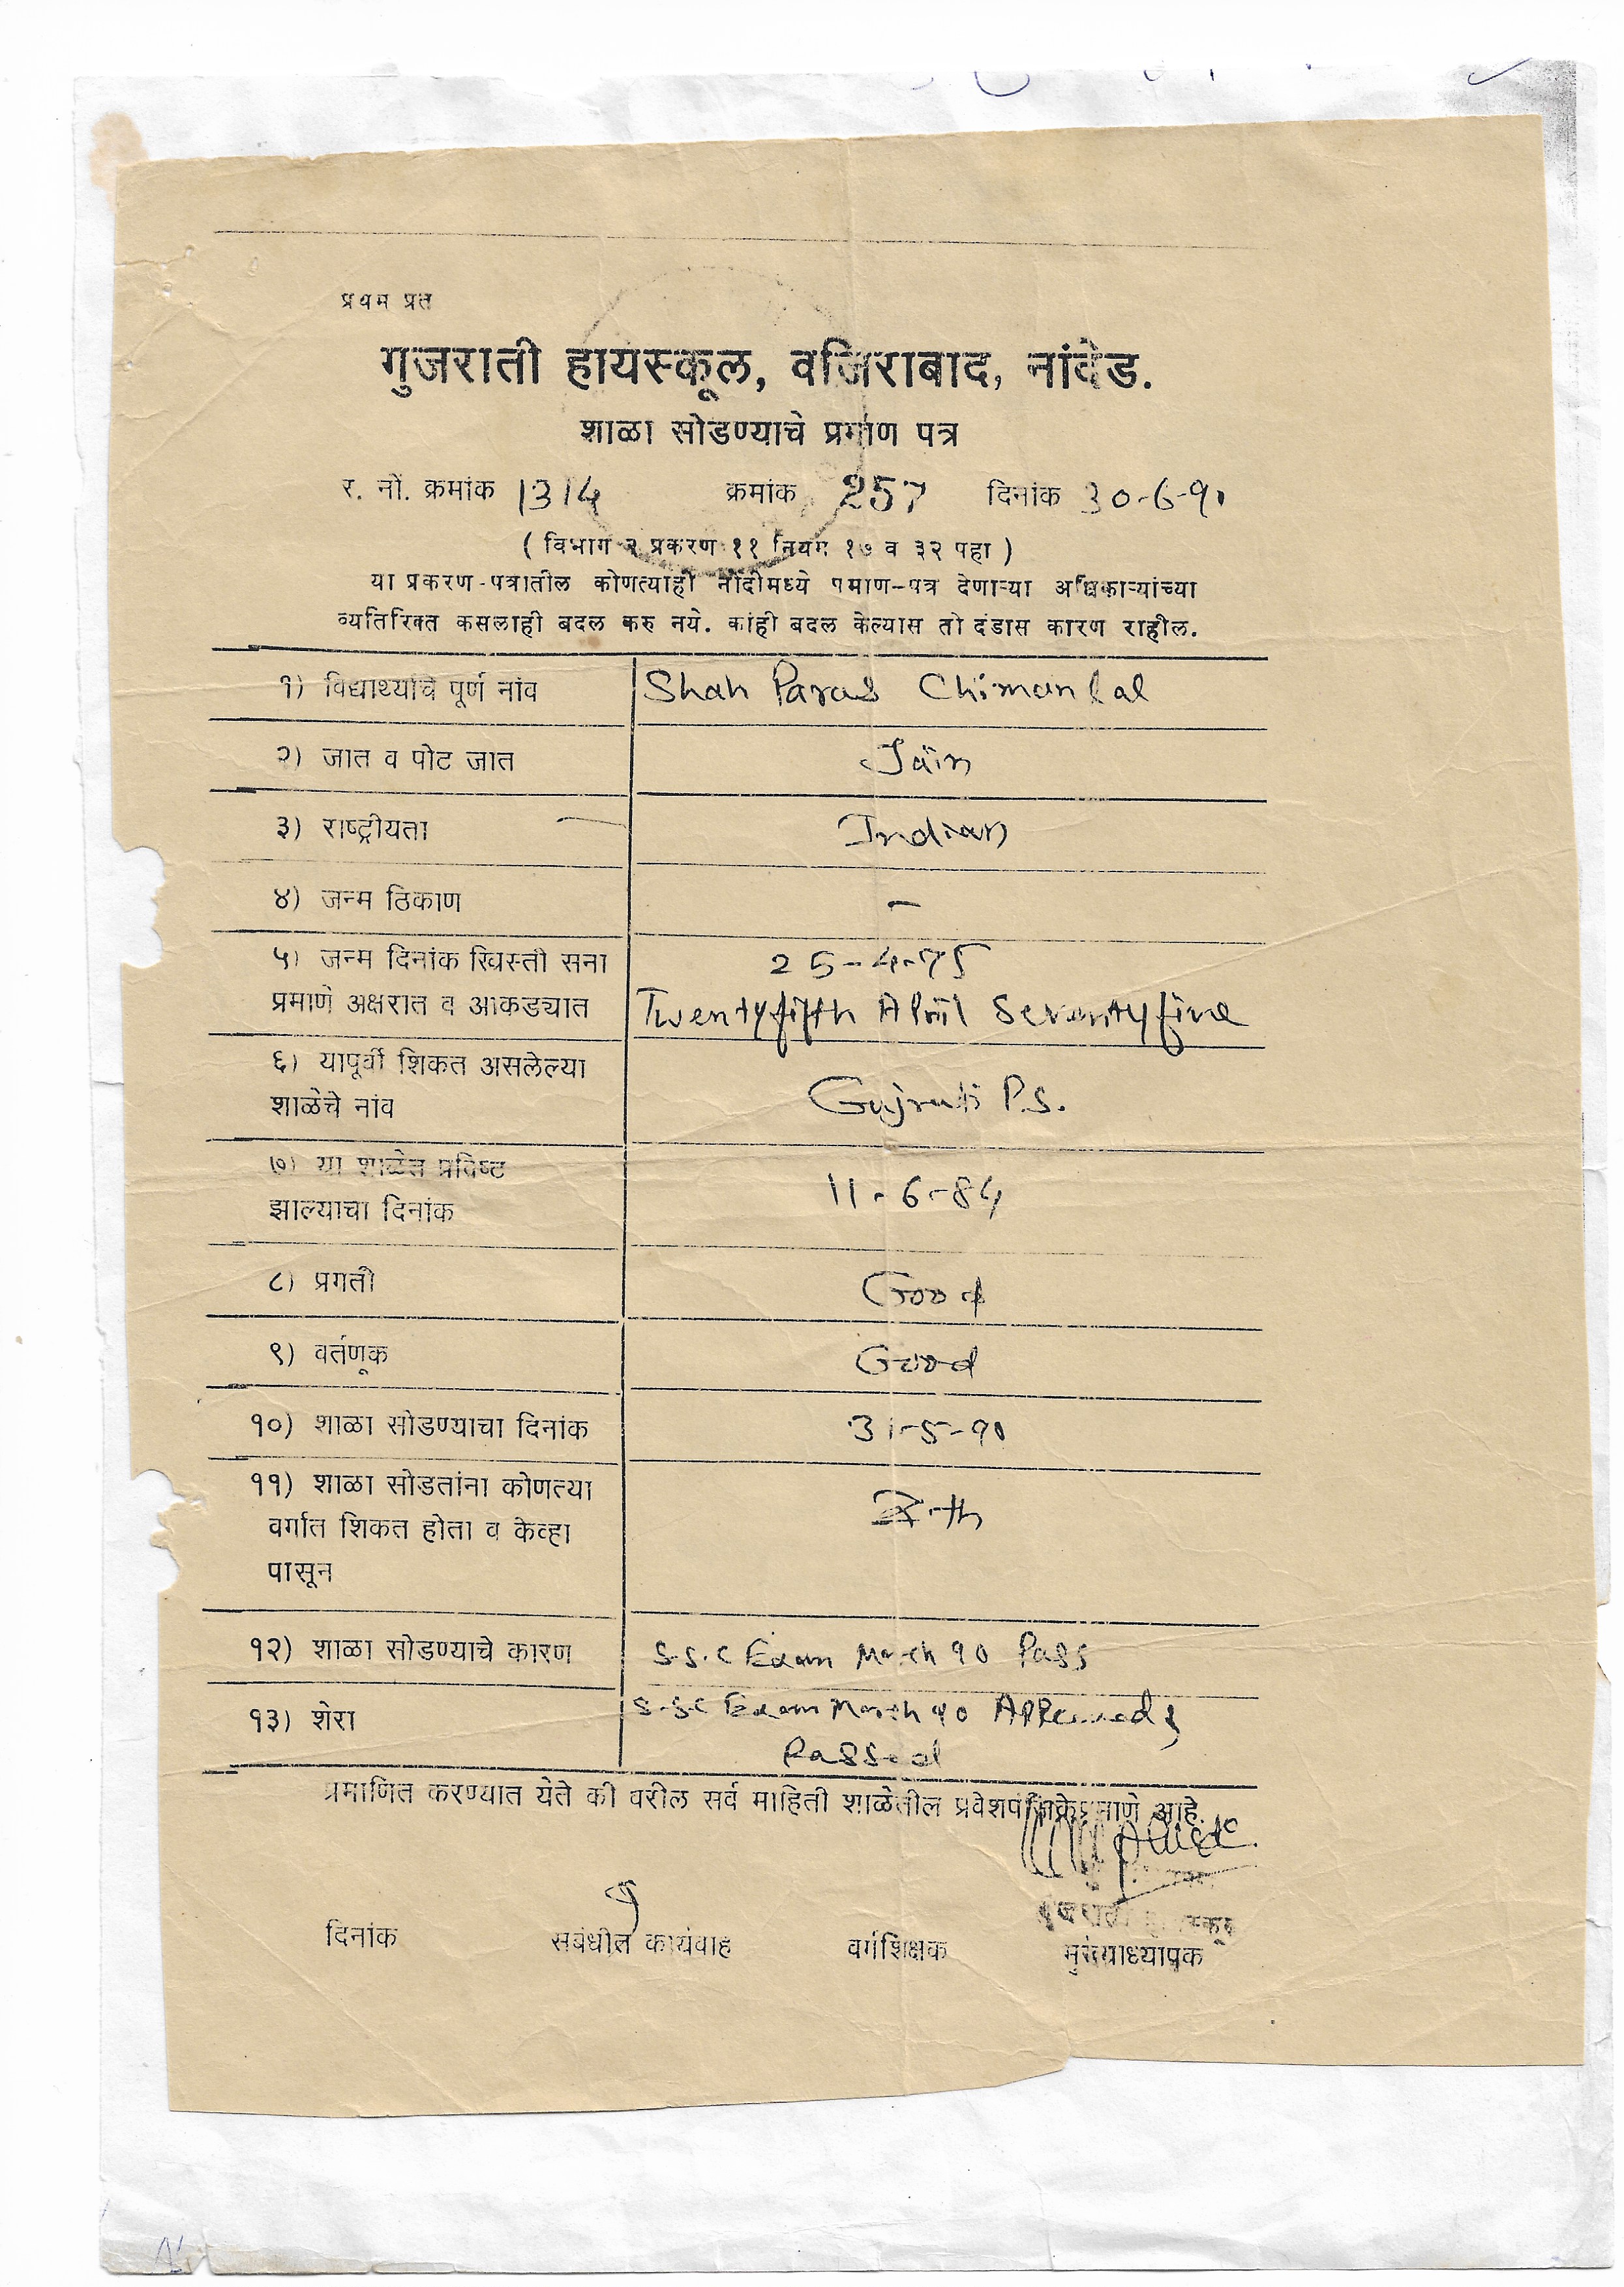 प्रथम प्रत
गुजराती हायस्कूल, वजिराबाद, नांदेड.
शाळा सोडण्याचे प्रमाण पत्र
र. नों. क्रमांक 1314 क्रमांक 257 दिनांक 30-6-90
( विभाग २ प्रकरण ११ नियम १७ व ३२ पहा )
या प्रकरण-पत्रातील कोणत्याही नोंदीमध्ये प्रमाण-पत्र देणाऱ्या अधिकाऱ्यांच्या
व्यतिरिक्त कसलाही बदल करु नये. कांही बदल केल्यास तो दंडास कारण राहील.
१) विद्यार्थ्याचे पूर्ण नांव Shah Paras Chimanlal
२) जात व पोट जात Jain
३) राष्ट्रीयता Indian
४) जन्म ठिकाण -
५) जन्म दिनांक ख्रिस्ती सना 25-4-75
प्रमाणे अक्षरात व आकड्यात Twentyfifth April Seventyfive
६) यापूर्वी शिकत असलेल्या
शाळेचे नांव Gujrati P.S.
७) या शाळेत प्रविष्ट
झाल्याचा दिनांक 11-6-84
८) प्रगती Good
९) वर्तणूक Good
१०) शाळा सोडण्याचा दिनांक 31-5-90
११) शाळा सोडतांना कोणत्या
वर्गात शिकत होता व केव्हा
पासून
१२) शाळा सोडण्याचे कारण S.S.C Exam March 90 Pass
१३) शेरा S.S.C Exam March 90 Appeared &
Passed
प्रमाणित करण्यात येते की वरील सर्व माहिती शाळेतील प्रवेशपत्रिकेप्रमाणे आहे.
दिनांक संबंधीत कार्यवाह वर्गशिक्षक मुख्याध्यापक